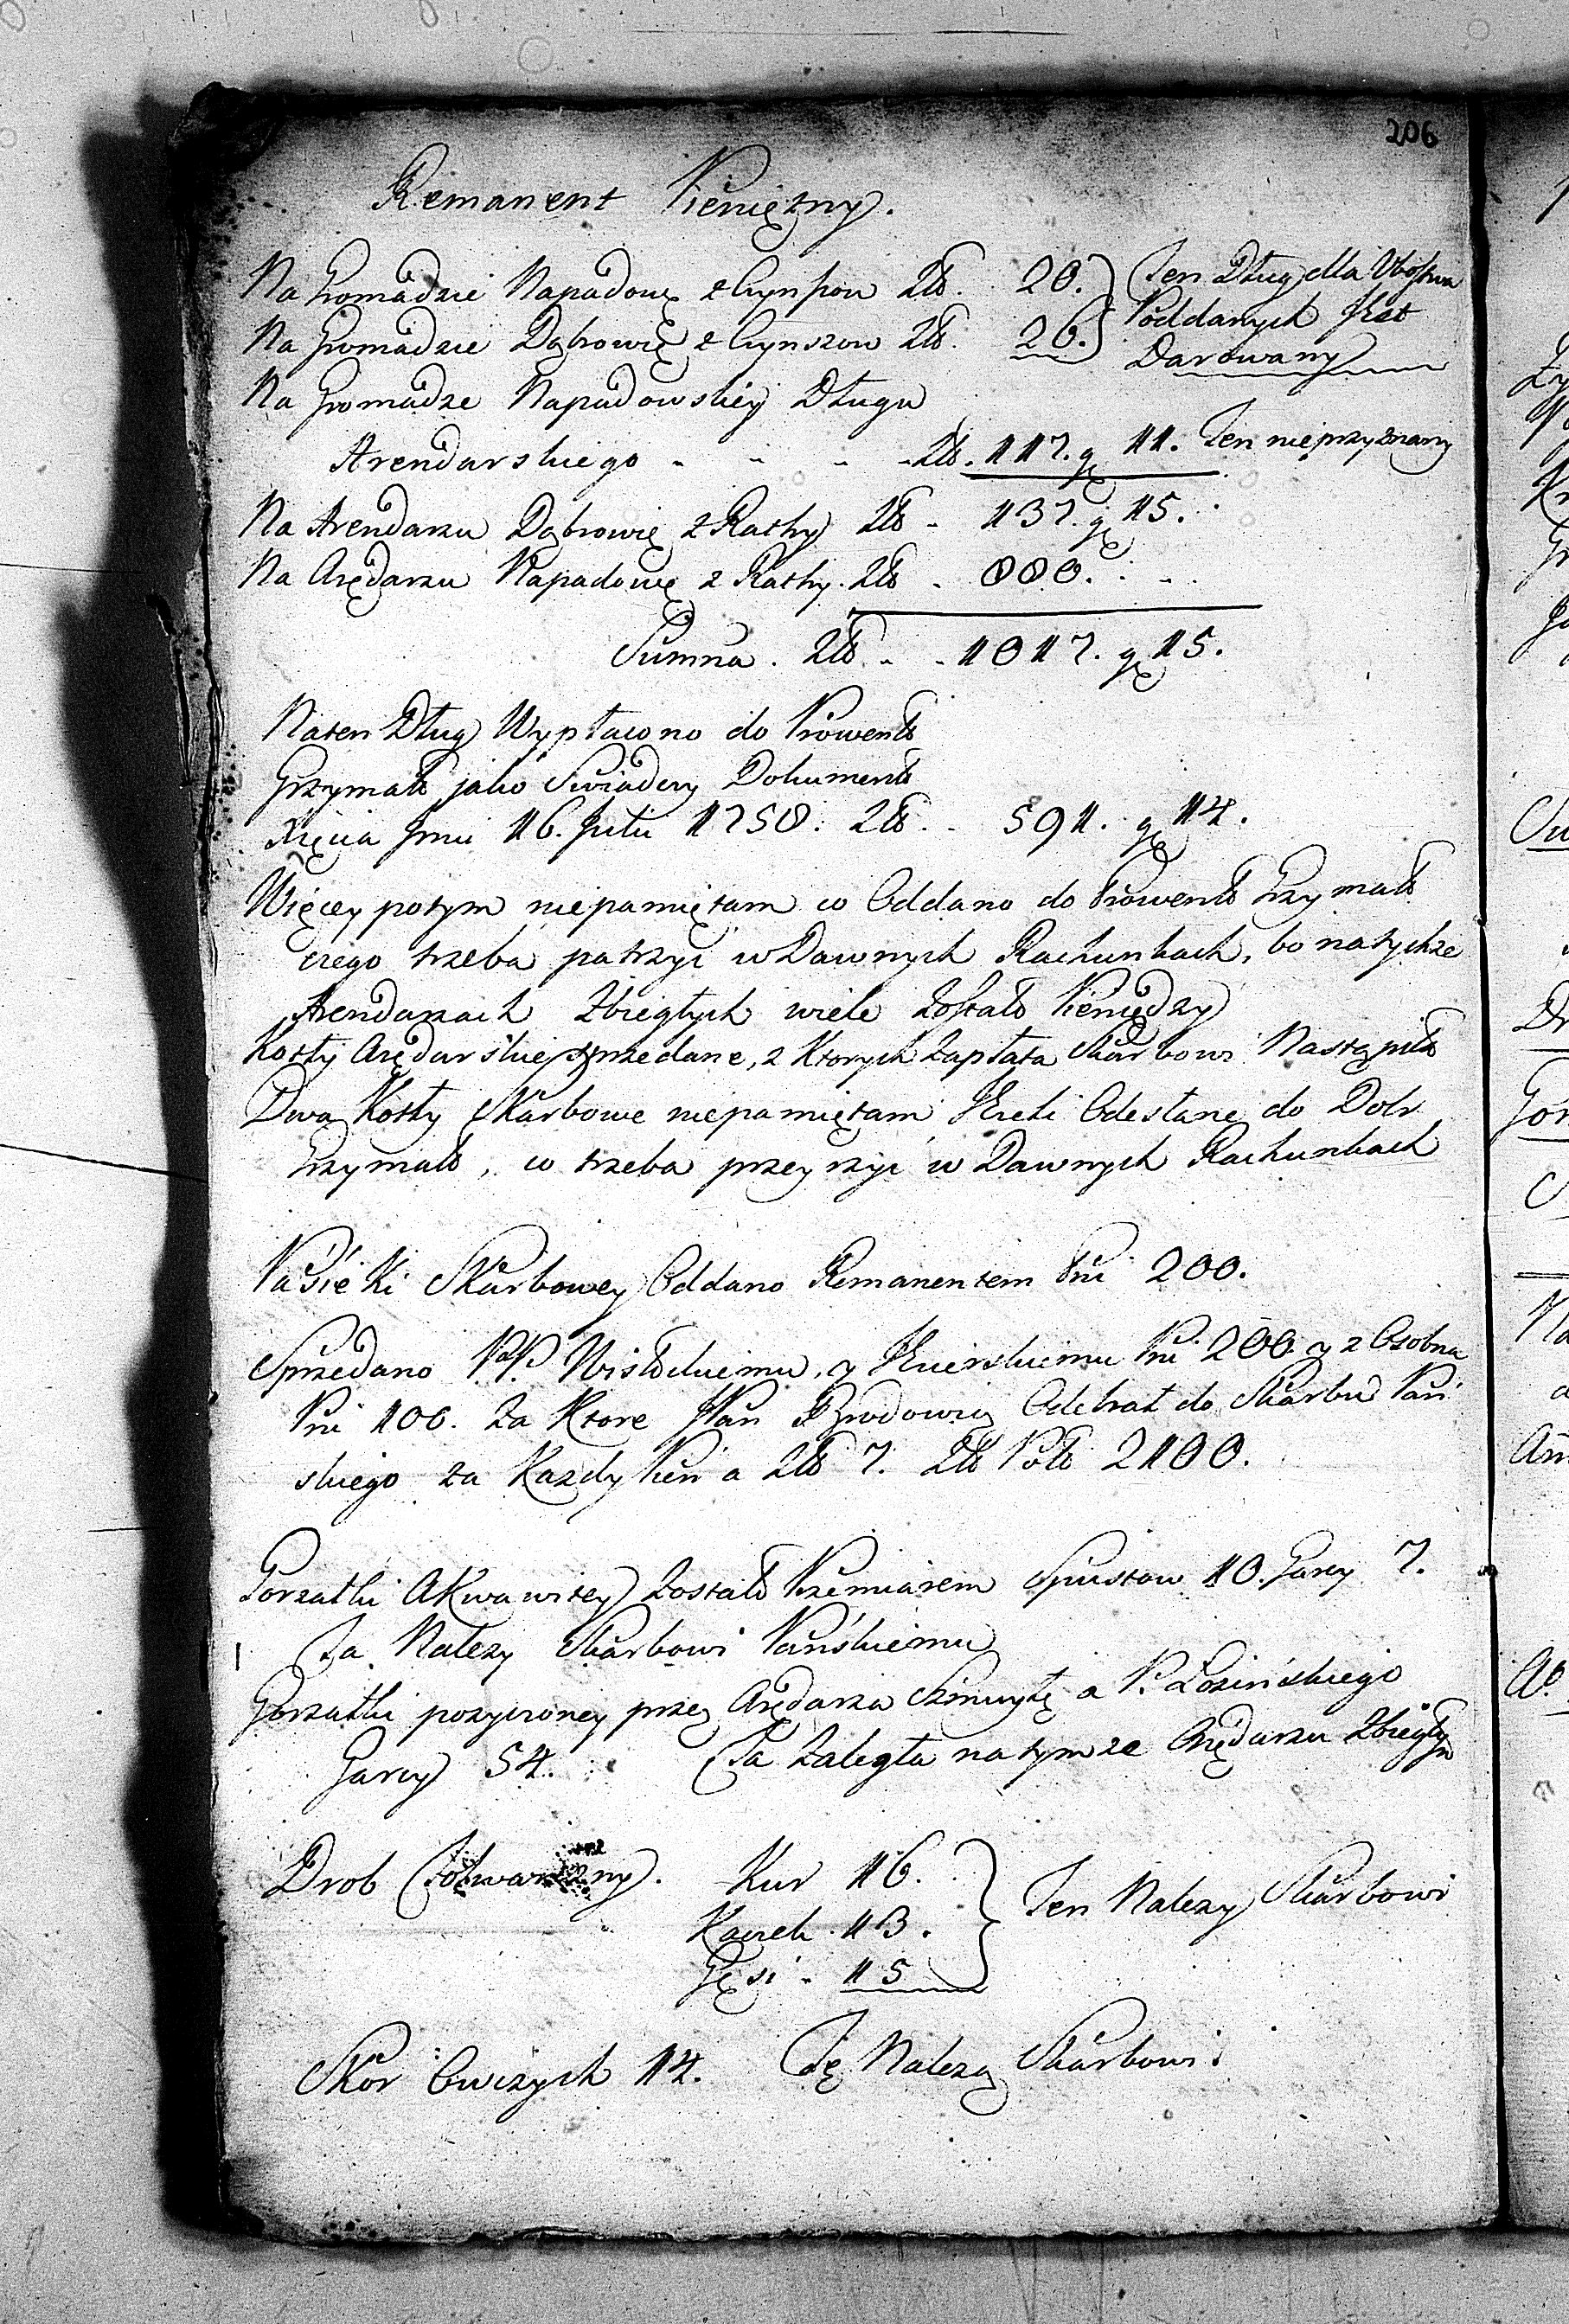 206
Remanent Pieniężny.
Na Gromadzie Napadowę z Czynszow Zło. 20. Ten Dług dla Ubostwa
Na Gromadzie Dąbrowię z Czynszow Zło. 26. Poddanych Jest
Darowany
Na Gromadze Napadowskiey Długu
Arendarskiego - - - - Zło. 117. g 11. Ten nieprzyznany
Na Arendarzu Dąbrowię z Rathy Zło - 137. g 15.
Na Arędarzu Napadowę z Rathy. Zło - 880.
Summa. Zło - - 1017. g 15.
Naten Dług Wypłacono do Prowento
Grzymało jako Swiadczy Dokumento
Xięcia Jmci 16. Julii 1758. Zło. - 591. g 14.
Więcey potym niepamiętam co Oddano do Prowento Grzymało
czego trzeba patrzyć w Dawnych Rachunkach, bo natychze
Arendarzach Zbiegłych wiele Zostało Pieniędzy
Kotły Arędarskie przedane, z Ktorych Zapłata Skarbowi Nastąpiło
Dwa Kotły Skarbowe niepamiętam Jezeli Odesłane do Dobr
Grzymało, co trzeba przeyrzyć w Dawnych Rachunkach
Pasieki Skarbowey Oddano Remanentem Pni 200.
Sprzedano P.P. Wisłockiemu, y Pni 200. y z Osobna
Pni 100. Za Ktore JPan Brodowicz Odebrał do Skarbu Pań
skiego za Kazdy Pień a Zło 7. Zło Polo 2100.
Gorzałki Akwawitey Zostało Przemiarem Spustow 10. Garcy 7.
Ta Nalezy Skarbowi Pańskiemu
Gorzałki pozyczoney przez Arędarza Szmuyłę a P. Łozińskiego
Garcy 54. Ta Zaległa natymze Arędarzu Zbiegłym
Drob Folwarczny. Kur 16.
Kaczek. 13. Ten Nalezy Skarbowi
Gęsi - 15
Skor Owczych 14. Te Nalezą Skarbowi